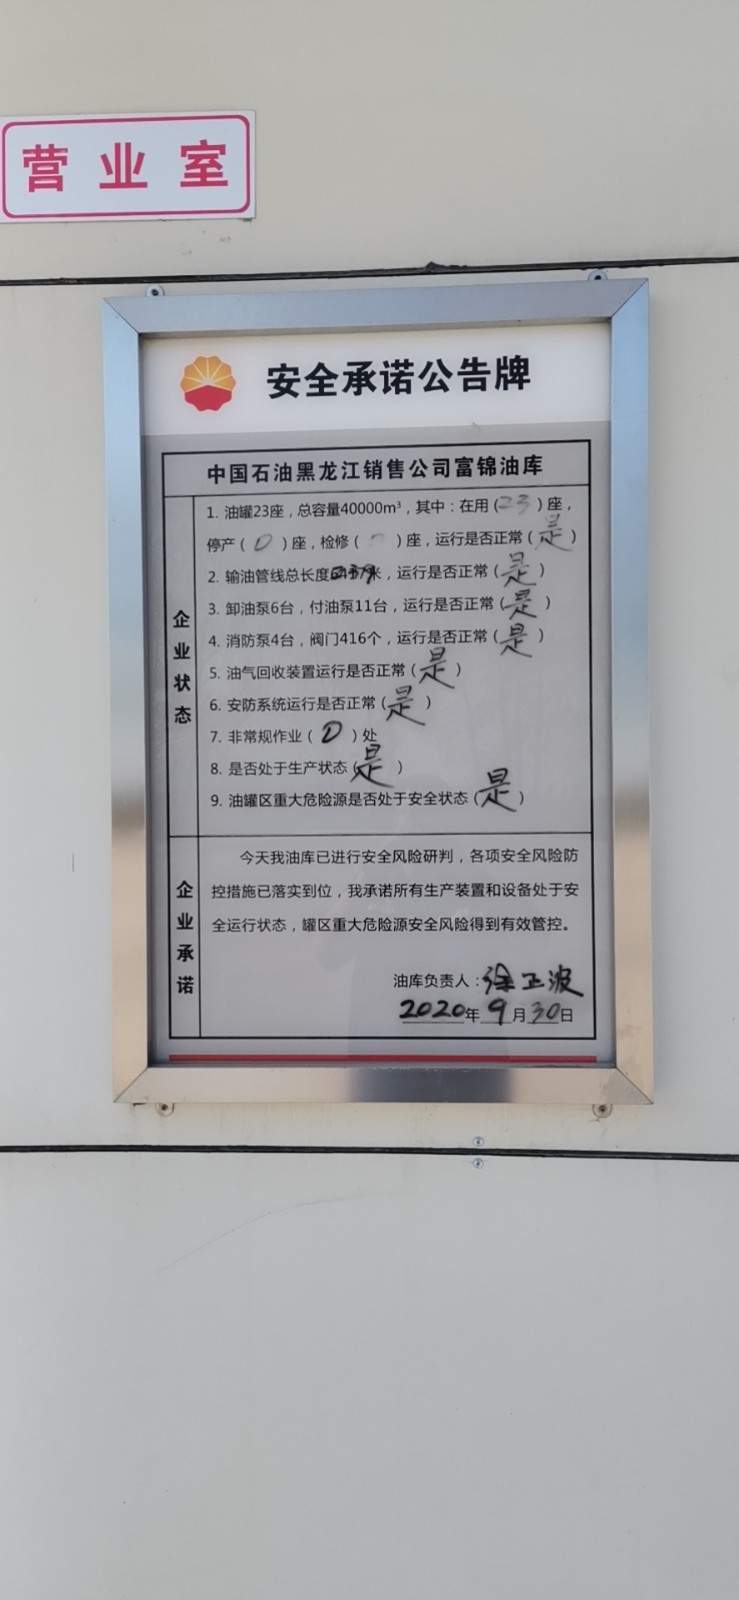 营业室
安全承诺公告牌
中国石油黑龙江销售公司富锦油库
企业状态
1. 油罐23座，总容量40000m³，其中：在用（23）座，
停产（0）座，检修（ ）座，运行是否正常（是）
2. 输油管线总长度 米，运行是否正常（是）
3. 卸油泵6台，付油泵11台，运行是否正常（是）
4. 消防泵4台，阀门416个，运行是否正常（是）
5. 油气回收装置运行是否正常（是）
6. 安防系统运行是否正常（是）
7. 非常规作业（0）处
8. 是否处于生产状态（是）
9. 油罐区重大危险源是否处于安全状态（是）
企业承诺
今天我油库已进行安全风险研判，各项安全风险防
控措施已落实到位，我承诺所有生产装置和设备处于安
全运行状态，罐区重大危险源安全风险得到有效管控。
油库负责人：徐正波
2020年9月30日